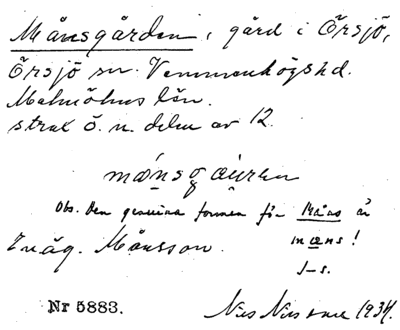 Månsgården, gård i Örsjö,
Örsjö sn. Vemmenhögs hd.
Malmöhus län.
strax ö. n. delen av 12.
månsgåʊrn
Obs. Den genuina formen för Måns är
mæns!
J-s.
Enäg. Månsson.
Nr 5883. Nils Nilsson 1934.